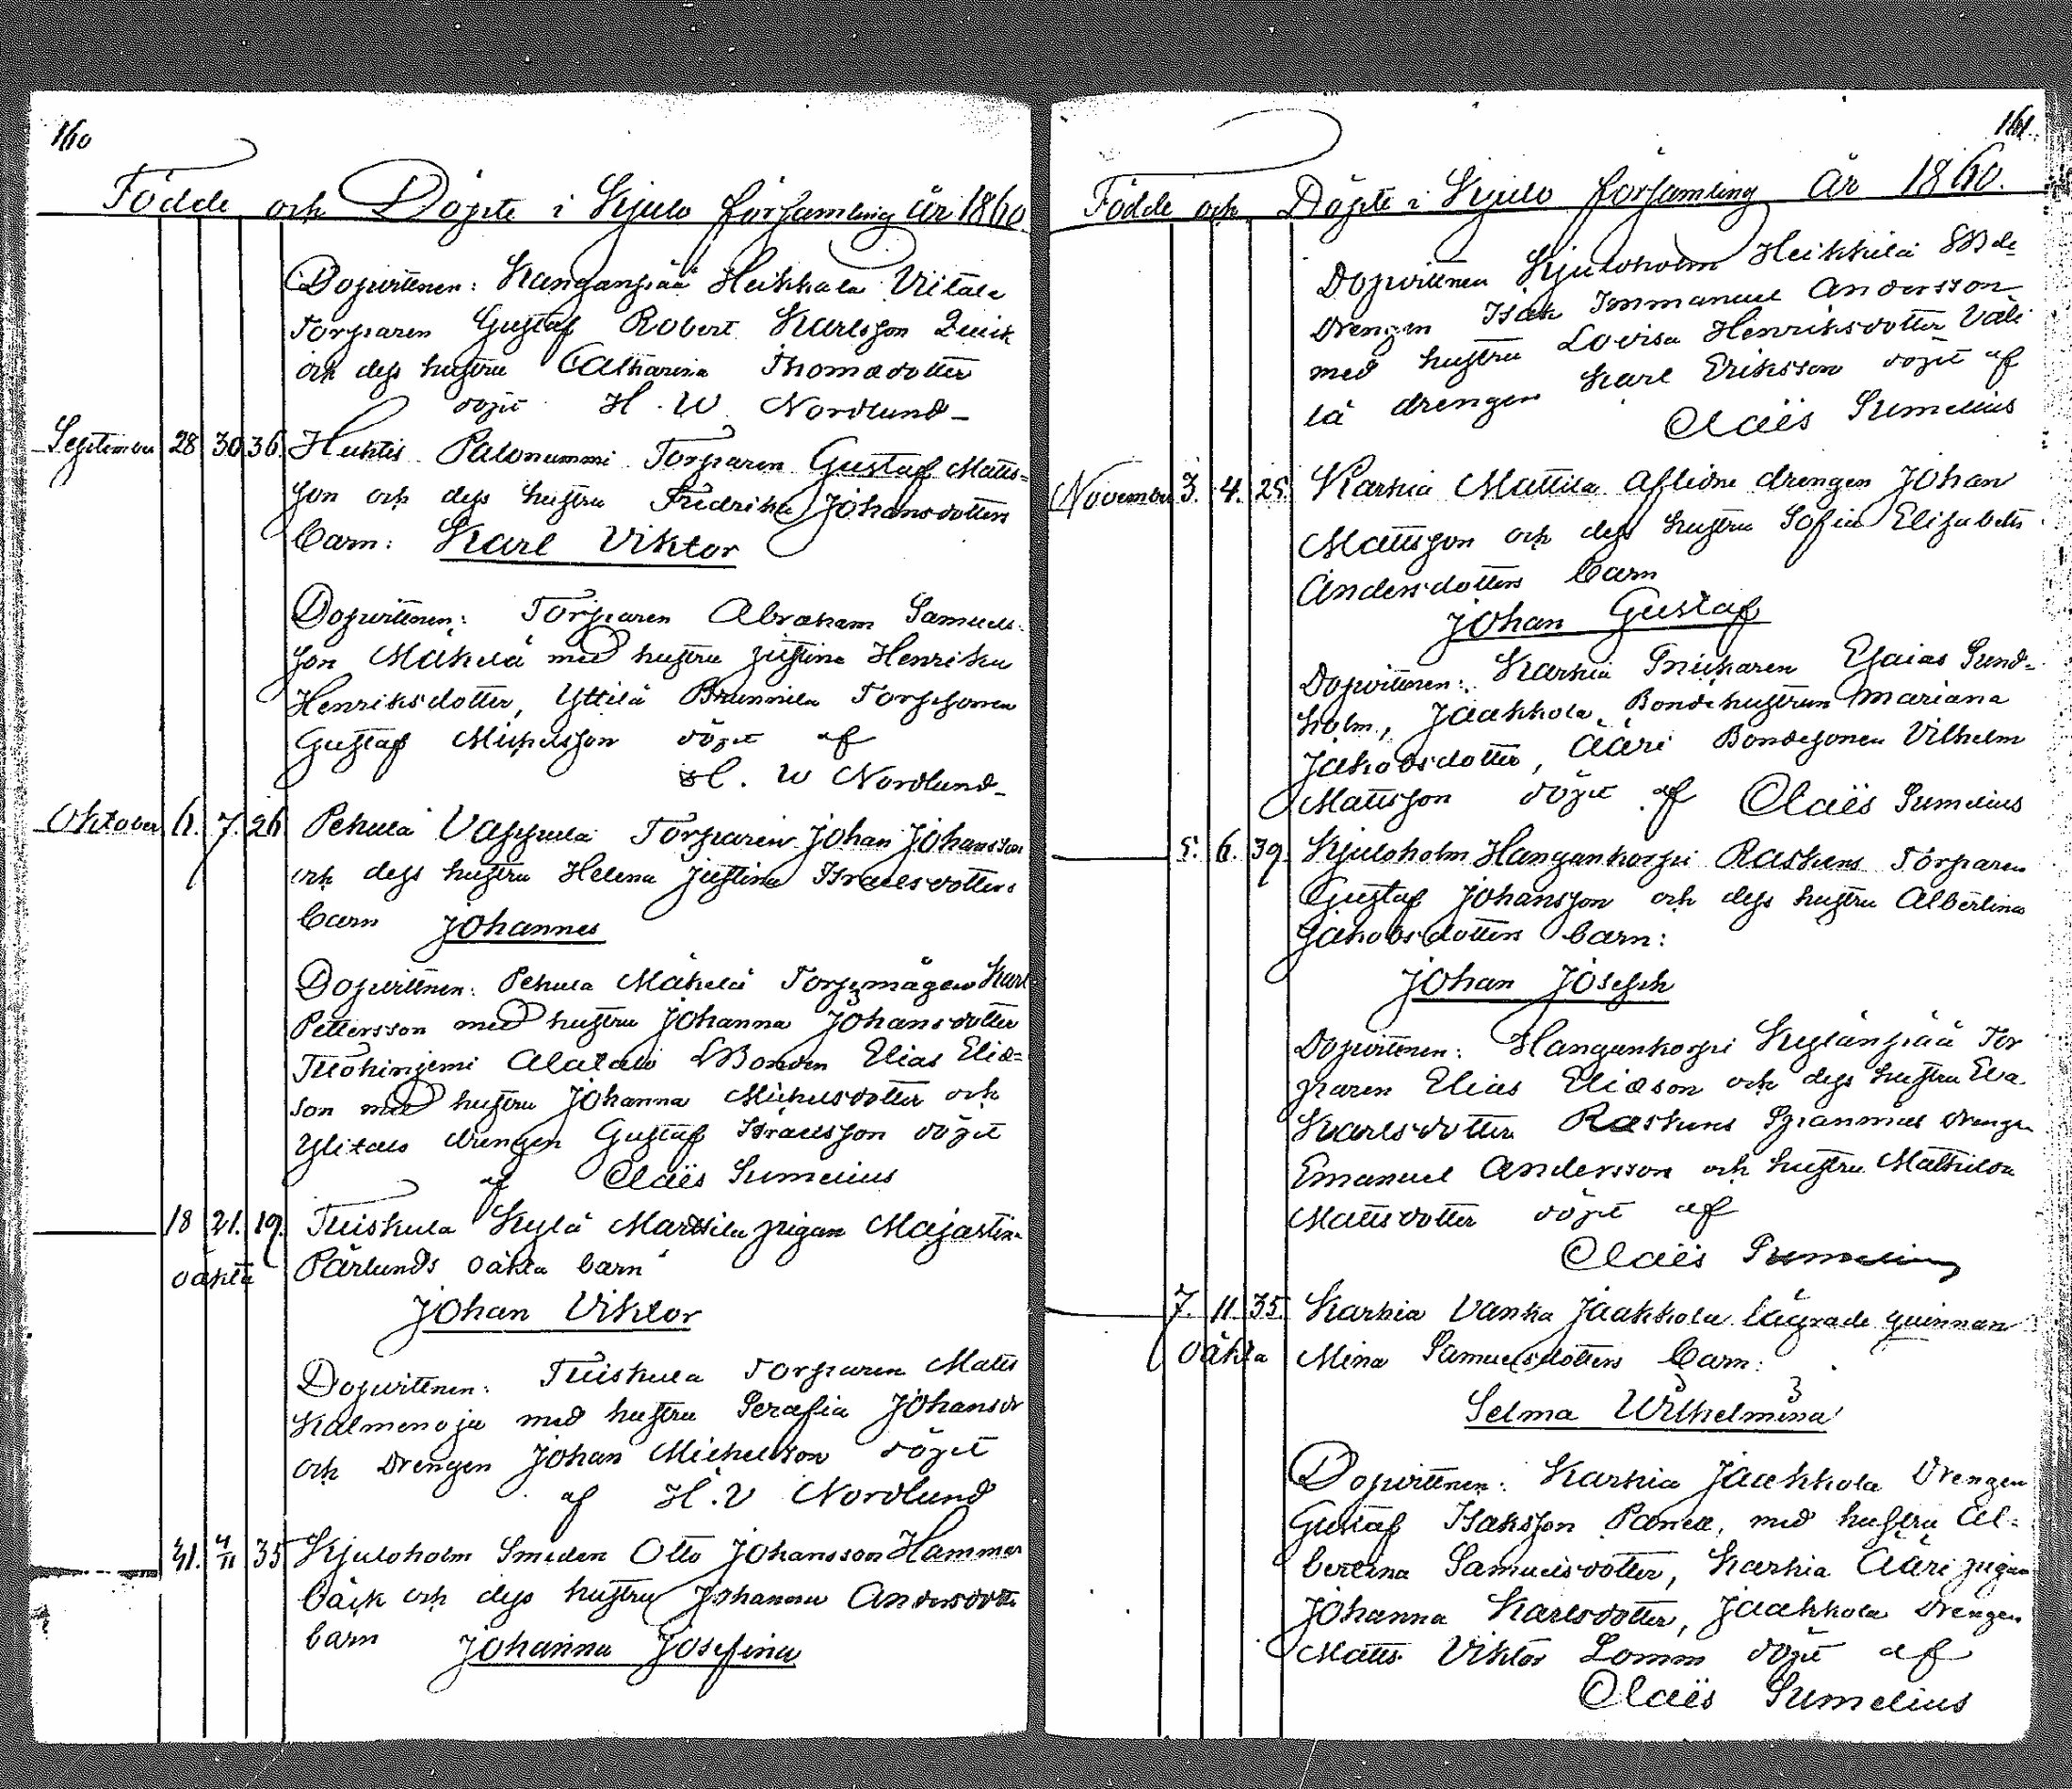 160
Födde och Döpte i Kjulo församling år 1860.
Dopvittnen: Kanganpää Heikkala Viitala
Torparen Gustaf Robert Karlsson Quick
och dess hustru Catharina Thomasdotter
döpt H. W. Nordlund
September 28 30 36. Huhtis Palonummi Torparen Gustaf Matts-
son och dess hustru Fredrika Johansdotters
barn: Karl Viktor
Dopvittnen: Torparen Abraham Samuels-
son Mäkelä med hustru Justina Henrika
Henriksdotter, Yttilä Brunnila Torpsonen
Gustaf Michelsson döpt af
H. W Nordlund
Oktober 6. 7. 26 Pehula Vappula Torparen Johan Johansson
och dess hustru Helena Justina Israelsdotters
barn Johannes
Dopvittnen: Pehula Mäkelä Torpmågen Karl
Pettersson med hustru Johanna Johansdotter
Tuohiniemi Alatalo Bonden Elias Elias-
son med hustru Johanna Michelsdotter och
Ylitalo drengen Gustaf Israelsson döpt
af Claës Sumelius
18 21. 19. Tuiskula Kylä Marttila pigan Majastina
oäkta Pärlunds oäkta barn
Johan Viktor
Dopvittnen: Tuiskula Torparen Matts
Kalmenoja med hustru Serafia Johansdr
och Drengen Johan Michelsson döpt
af H. V Nordlund
31. 4/11 35 Kjuloholm Smeden Otto Johansson Hammar
bäck och dess hustru Johanna Andersdott
barn Johanna Josefina
161.
Födde och Döpte i Kjulo församling År 1860.
Dopvittnen Kjuloholm Heikkilä
Drengen Isak Immanuel Andersson
med hustru Lovisa Henriksdotter Väli
lä drengen Karl Eriksson döpt af
Claës Sumelius
November 3. 4. 25. Karhia Mattila aflidne drengen Johan
Mattsson och dess hustru Sofia Elisabeth
Andersdotters barn
Johan Gustaf
Dopvittnen: Karhia Snickaren Esaias Sund-
holm, Jaakkola Bondehustrun Mariana
Jakobsdotter, Ääri Bondesonen Vilhelm
Mattsson döpt af Claës Sumelius
5. 6. 39. Kjuloholm Hangankorpi Raskens Torparen
Gustaf Johansson och dess hustru Albertina
Jakobsdotters barn:
Johan Joseph
Dopvittnen: Hangankorpi Kylänpää Tor
paren Elias Eliasson och dess hustru Eva
Karlsdotter Raskens Drengen
Emanuel Andersson och hustru Mathilda
Mattsdotter döpt af
Claës Sumelius
7. 11. 35. Karhia Vanha Jaakkola lägrade quinnan
oäkta Mina Samuelsdotters barn:
Selma Wilhelmina
Dopvittnen: Karhia Jaakkola Drengen
Gustaf Isaksson med hustru Al-
bertina Samuelsdotter, Karhia Ääri pigan
Johanna Karlsdotter, Jaakkola Drengen
Matts Viktor Lomm döpt af
Claës Sumelius